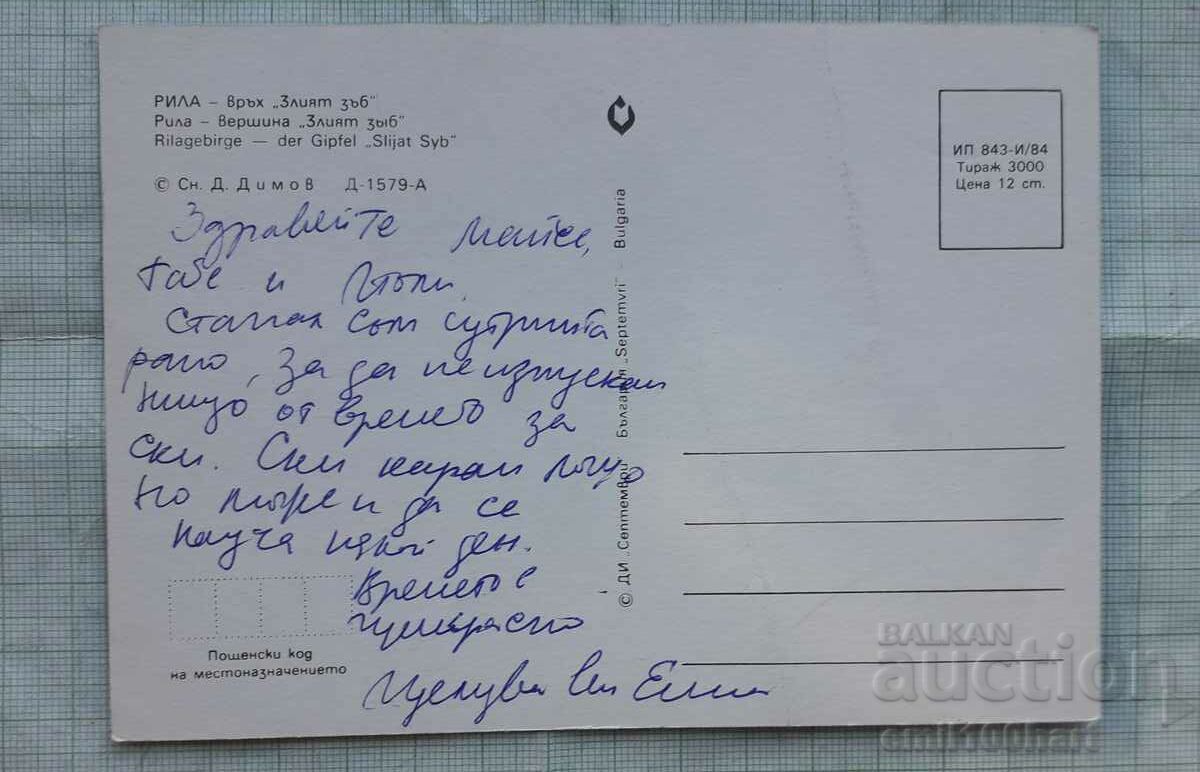 РИЛА – връх „Злият зъб“
Рила – вершина „Злият зыб“
Rilagebirge — der Gipfel „Slijat Syb“
© Сн. Д. Димов Д-1579-А
ИП 843-И/84
Тираж 3000
Цена 12 ст.
Здравейте
и
Станал съм сутринта
рано, за да не изпускам
нищо от времето за
ски. Ски карам лошо
но може и да се
науча някой ден.
Времето е
прекрасно
Целува ви
Пощенски код
на местоназначението
© ДИ „Септември“ България „Septemvri“ - Bulgaria
BALKAN
auction
emil100hart